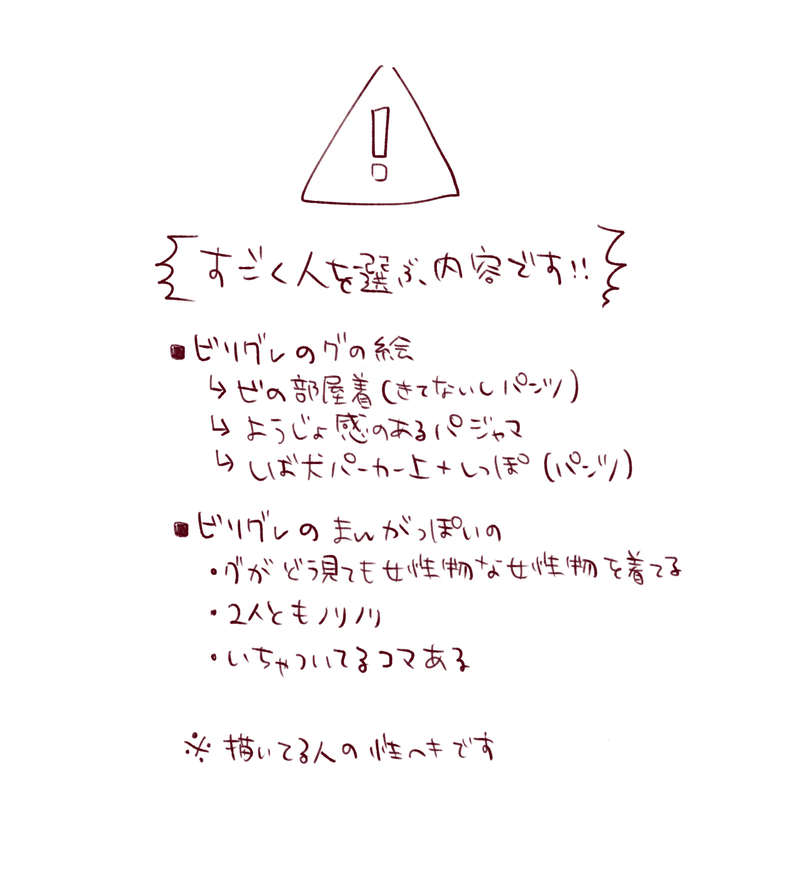 !
すごく人を選ぶ、内容です!!
■ビリグレのグの絵
↳ビの部屋着(きてないしパンツ)
↳ようじょ感のあるパジャマ
↳しば犬パーカー上+しっぽ(パンツ)
■ビリグレのまんがっぽいの
・グがどう見ても女性物な女性物を着てる
・2人ともノリノリ
・いちゃついてるコマある
※描いてる人の性ヘキです